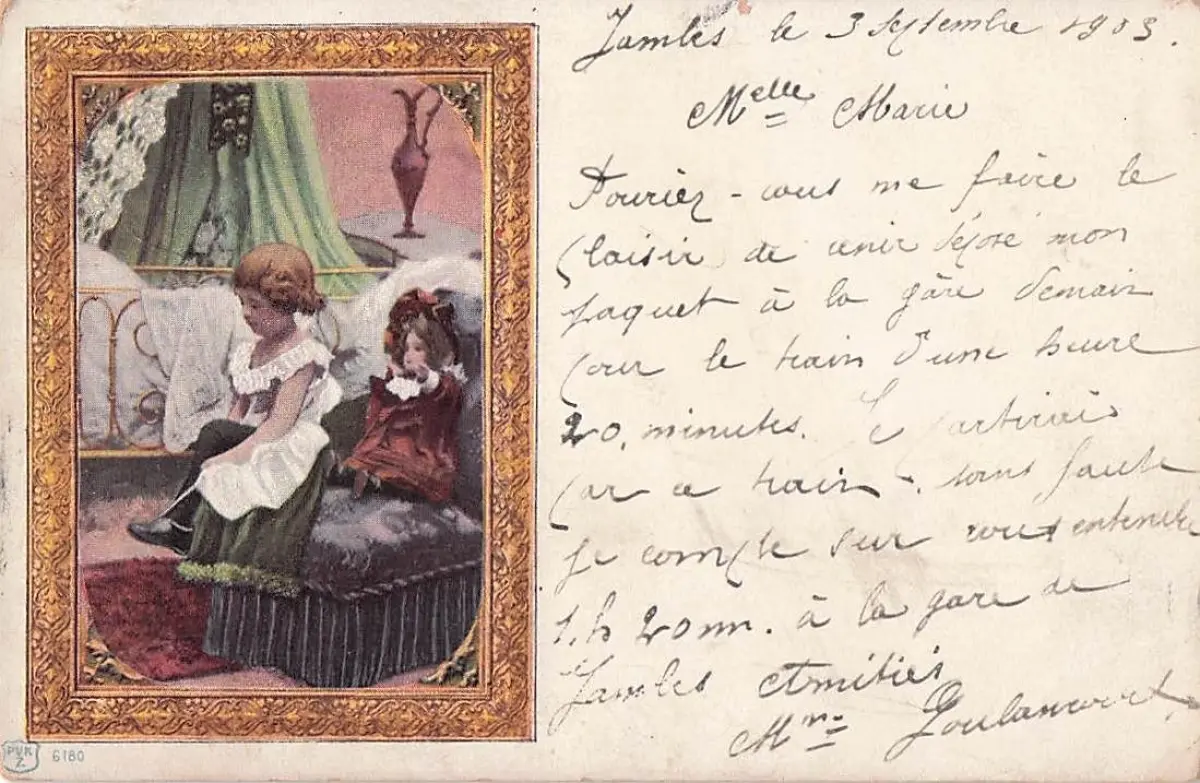 Jambes le 3 Septembre 1903.
Melle Marie
Pouriez-vous me faire le
plaisir de venir déposé mon
paquet à la gâre demain
pour le train d'une heure
20, minutes. Je partirai
par ce train. sans faute
je compte sur vous entendu
1.h 20 m. à la gare de
Jambes Amitiés
Mme
PVK
Z
6180